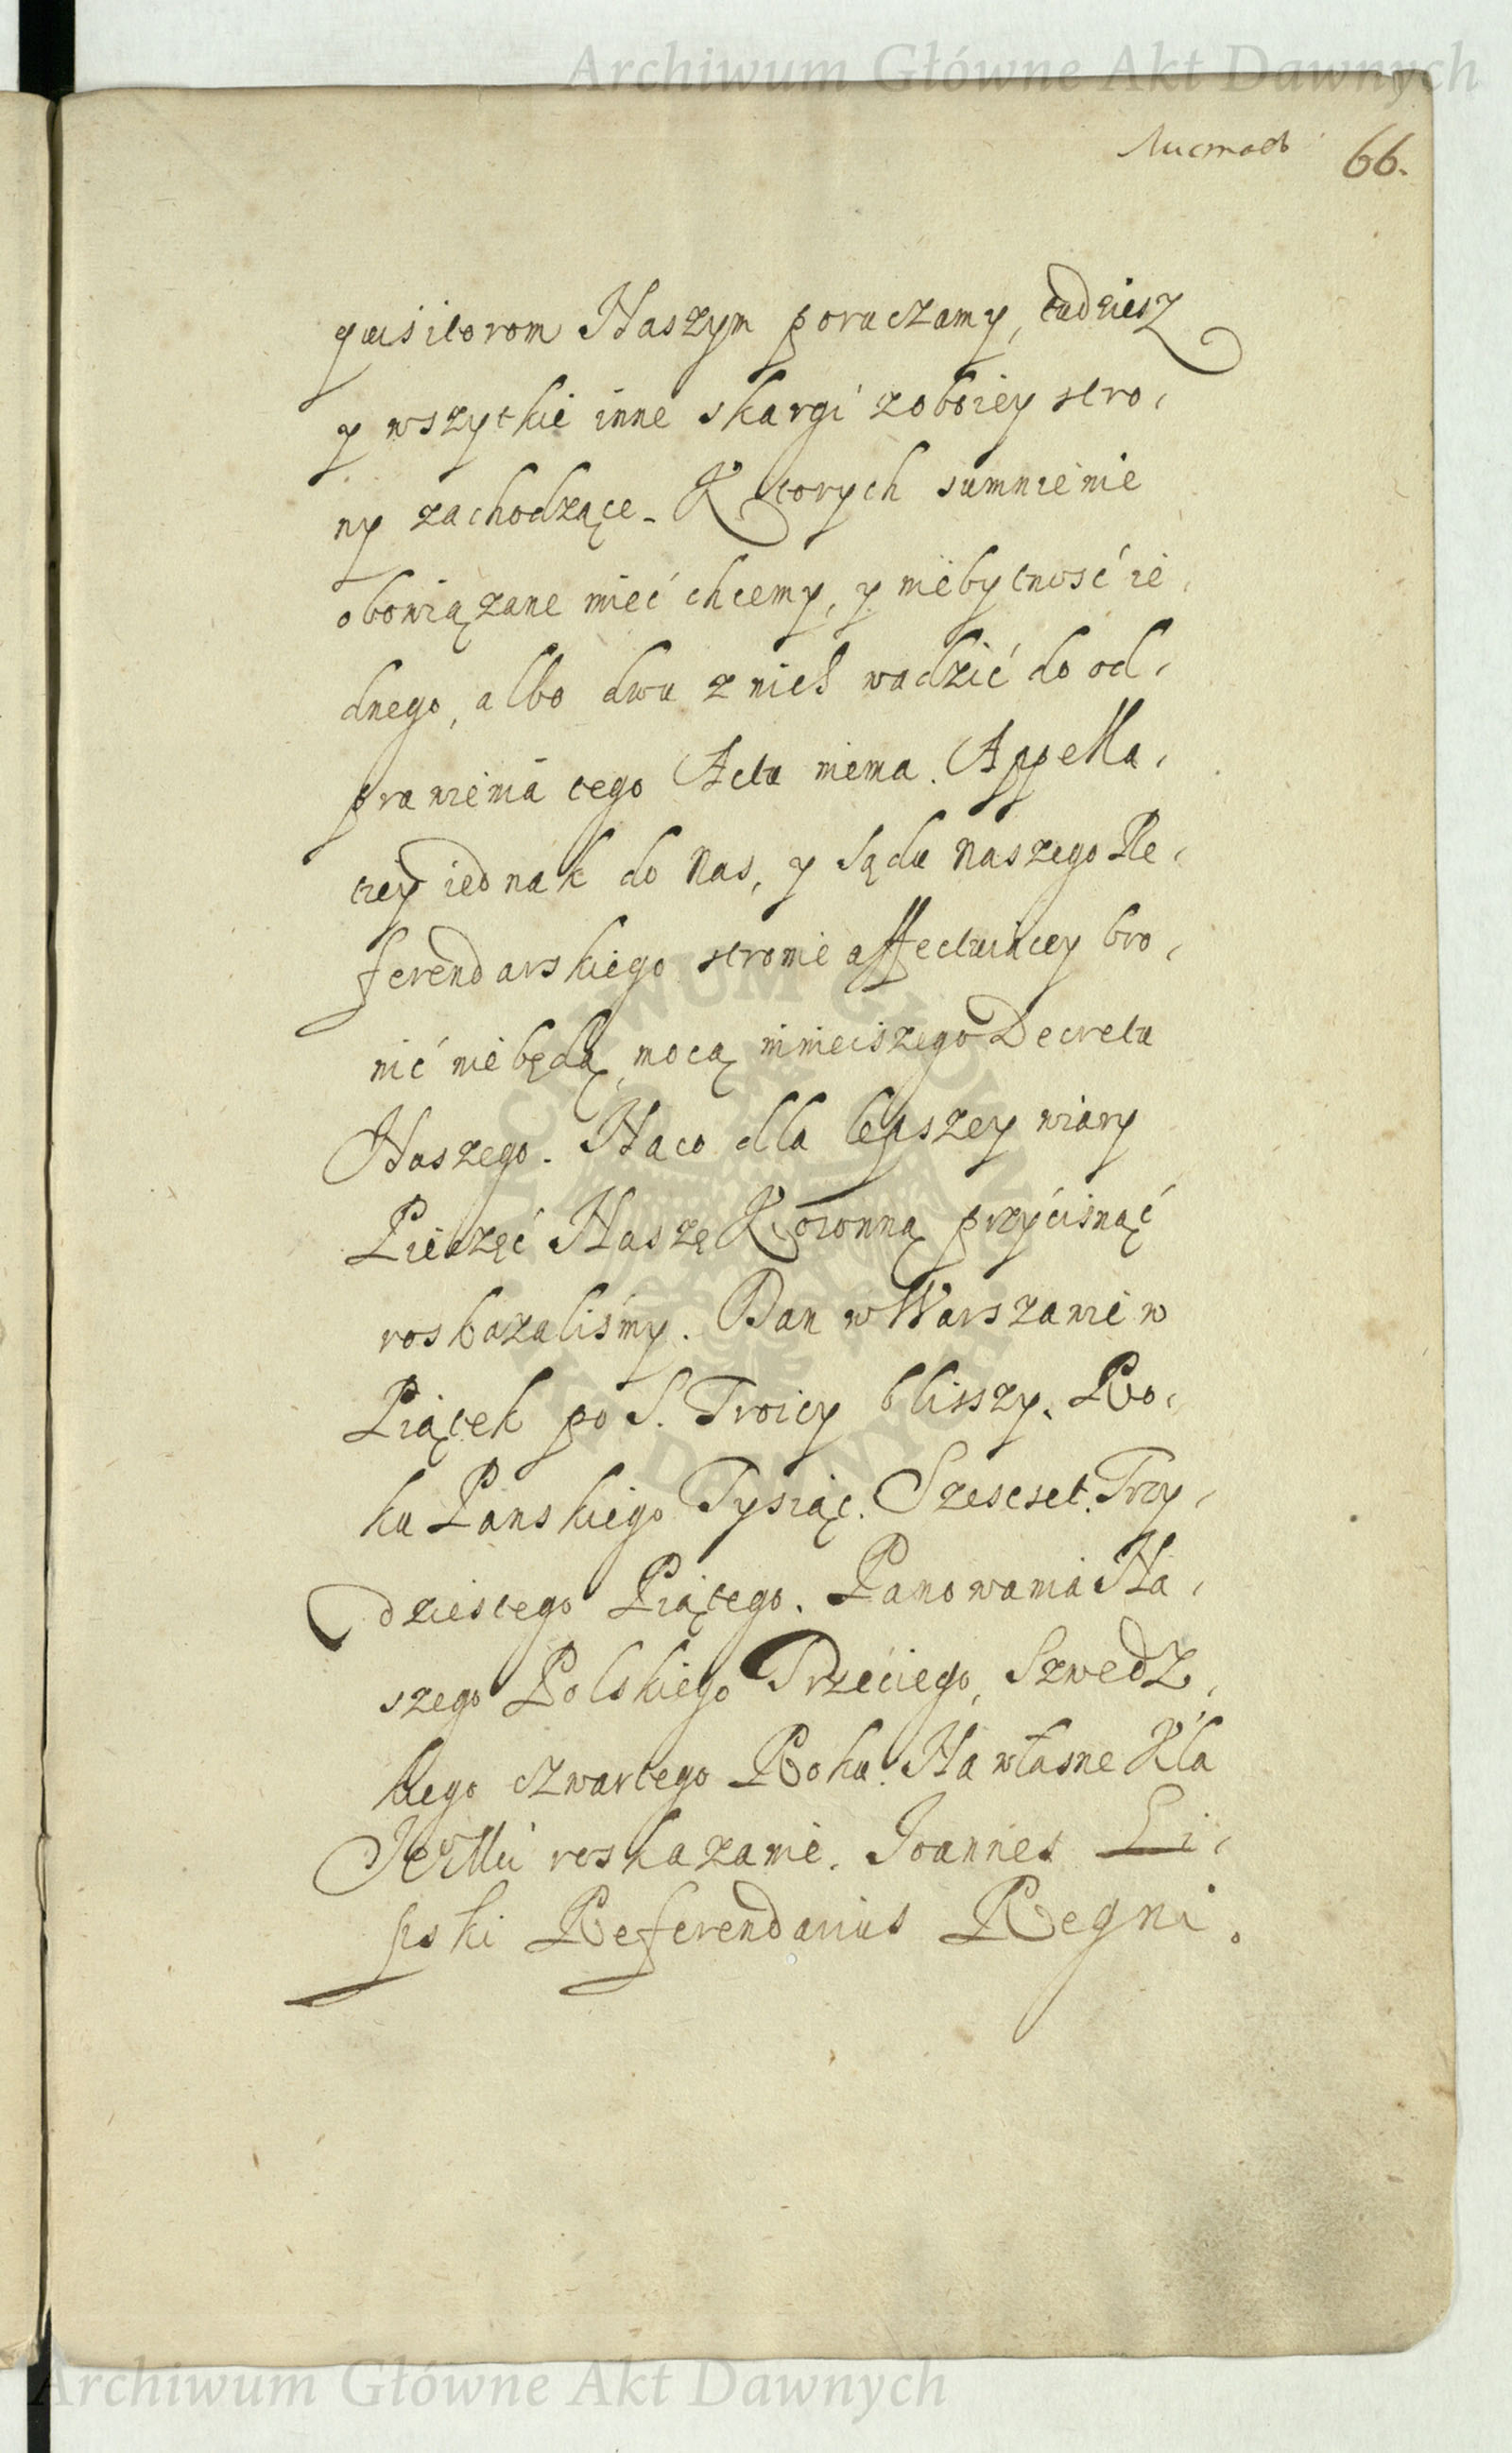 Archiwum Główne Akt Dawnych
Листовъ 66.
quisitorom Naszym poruczamy, tudziesz
y wszytkie inne skargi zoboiey stro,
ny zachodzące. Ktorych sumnienie
obowiązane mieć chcemy, y niebytność ie,
dnego, albo dwu znich wadzić do od,
prawienia tego Actu niema. Appella,
ciey iednak do Nas, y Sądu Naszego Re,
ferendarskiego stronie affectuiącey bro,
nić niebędą, mocą ninieiszego Decretu
Naszego. Naco dla lepszey wiary
Pieczęć Naszę Koronną przyćisnąć
roskazaliśmy. Dan w Warszawie w
Piątek po S. Troicy bliszszy. Ro,
ku Panskiego Tysiąc. Szescset. Trzy,
dziestego Piątego. Panowania Na,
szego Polskiego Trzeciego, Szwedz,
kiego czwartego Roku. Na własne Kla
JeoMci roskazanie. Joannes Li,
pski Referendarius Regni.
ARCHIWUM GŁÓWNE AKT DAWNYCH
Archiwum Główne Akt Dawnych